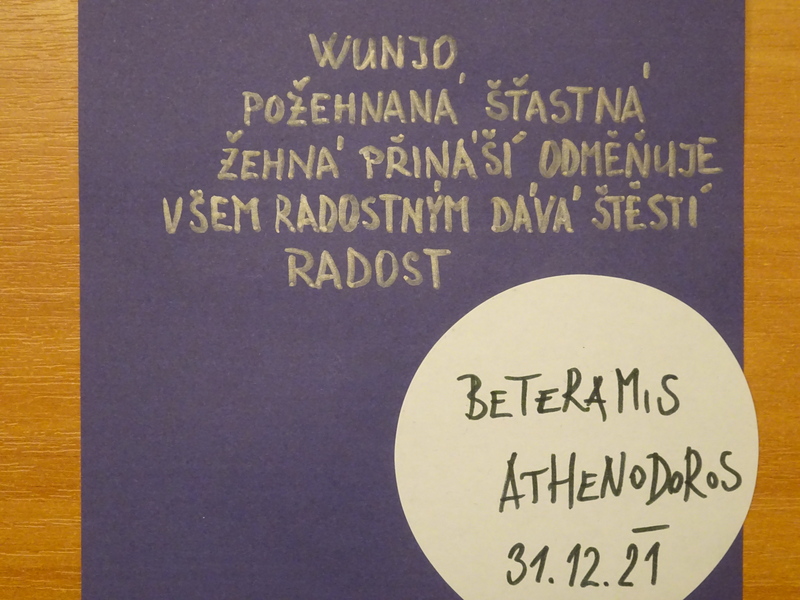 WUNJO
POŽEHNANÁ ŠŤASTNÁ
ŽEHNÁ PŘINÁŠÍ ODMĚŇUJE
VŠEM RADOSTNÝM DÁVÁ ŠTĚSTÍ
RADOST
BETERAMIS
ATHENODOROS
31.12.21